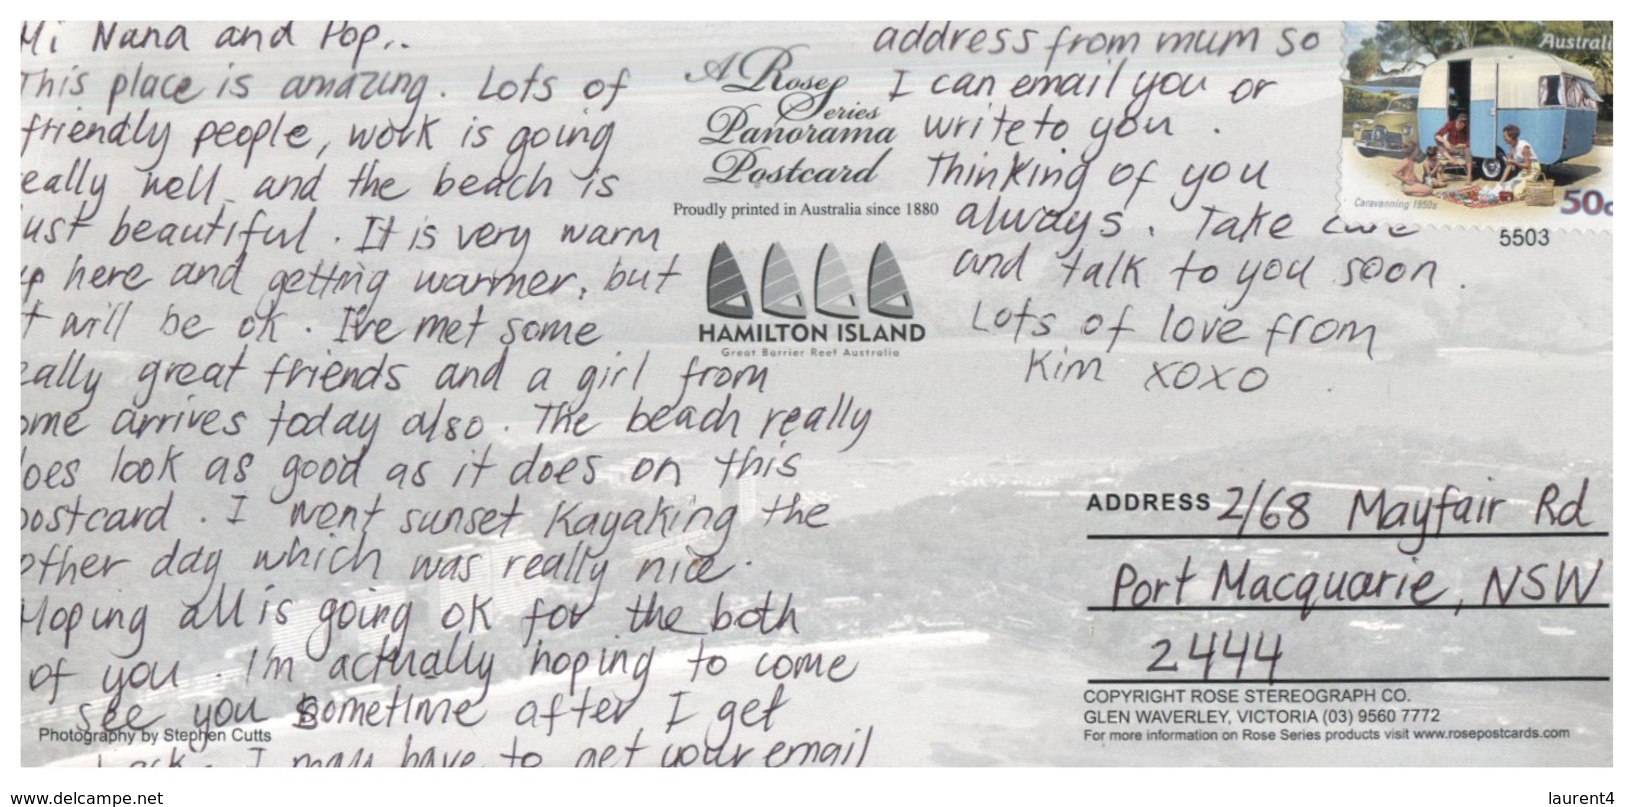 Hi Nana and Pop..
This place is amazing. Lots of
friendly people, work is going
eally well and the beach is
ust beautiful. It is very warm
up here and getting warmer, but
t will be ok. I've met some
eally great friends and a girl from
ome arrives today also. The beach really
oes look as good as it does on this
postcard. I went sunset Kayaking the
other day which was really nice.
Hoping all is going ok for the both
of you. I'm actually hoping to come
see you sometime after I get
ack. I may have to get your email
address from mum so
I can email you or
write to you.
Thinking of you
always. Take care
and talk to you soon.
Lots of love from
Kim xoxo
A Rose
Series
Panorama
Postcard
Proudly printed in Australia since 1880
HAMILTON ISLAND
Great Barrier Reef Australia
Australi
Caravanning 1950s
50c
5503
ADDRESS 2/68 Mayfair Rd
Port Macquarie, NSW
2444
COPYRIGHT ROSE STEREOGRAPH CO.
GLEN WAVERLEY, VICTORIA (03) 9560 7772
For more information on Rose Series products visit www.rosepostcards.com
Photography by Stephen Cutts
www.delcampe.net
laurent4